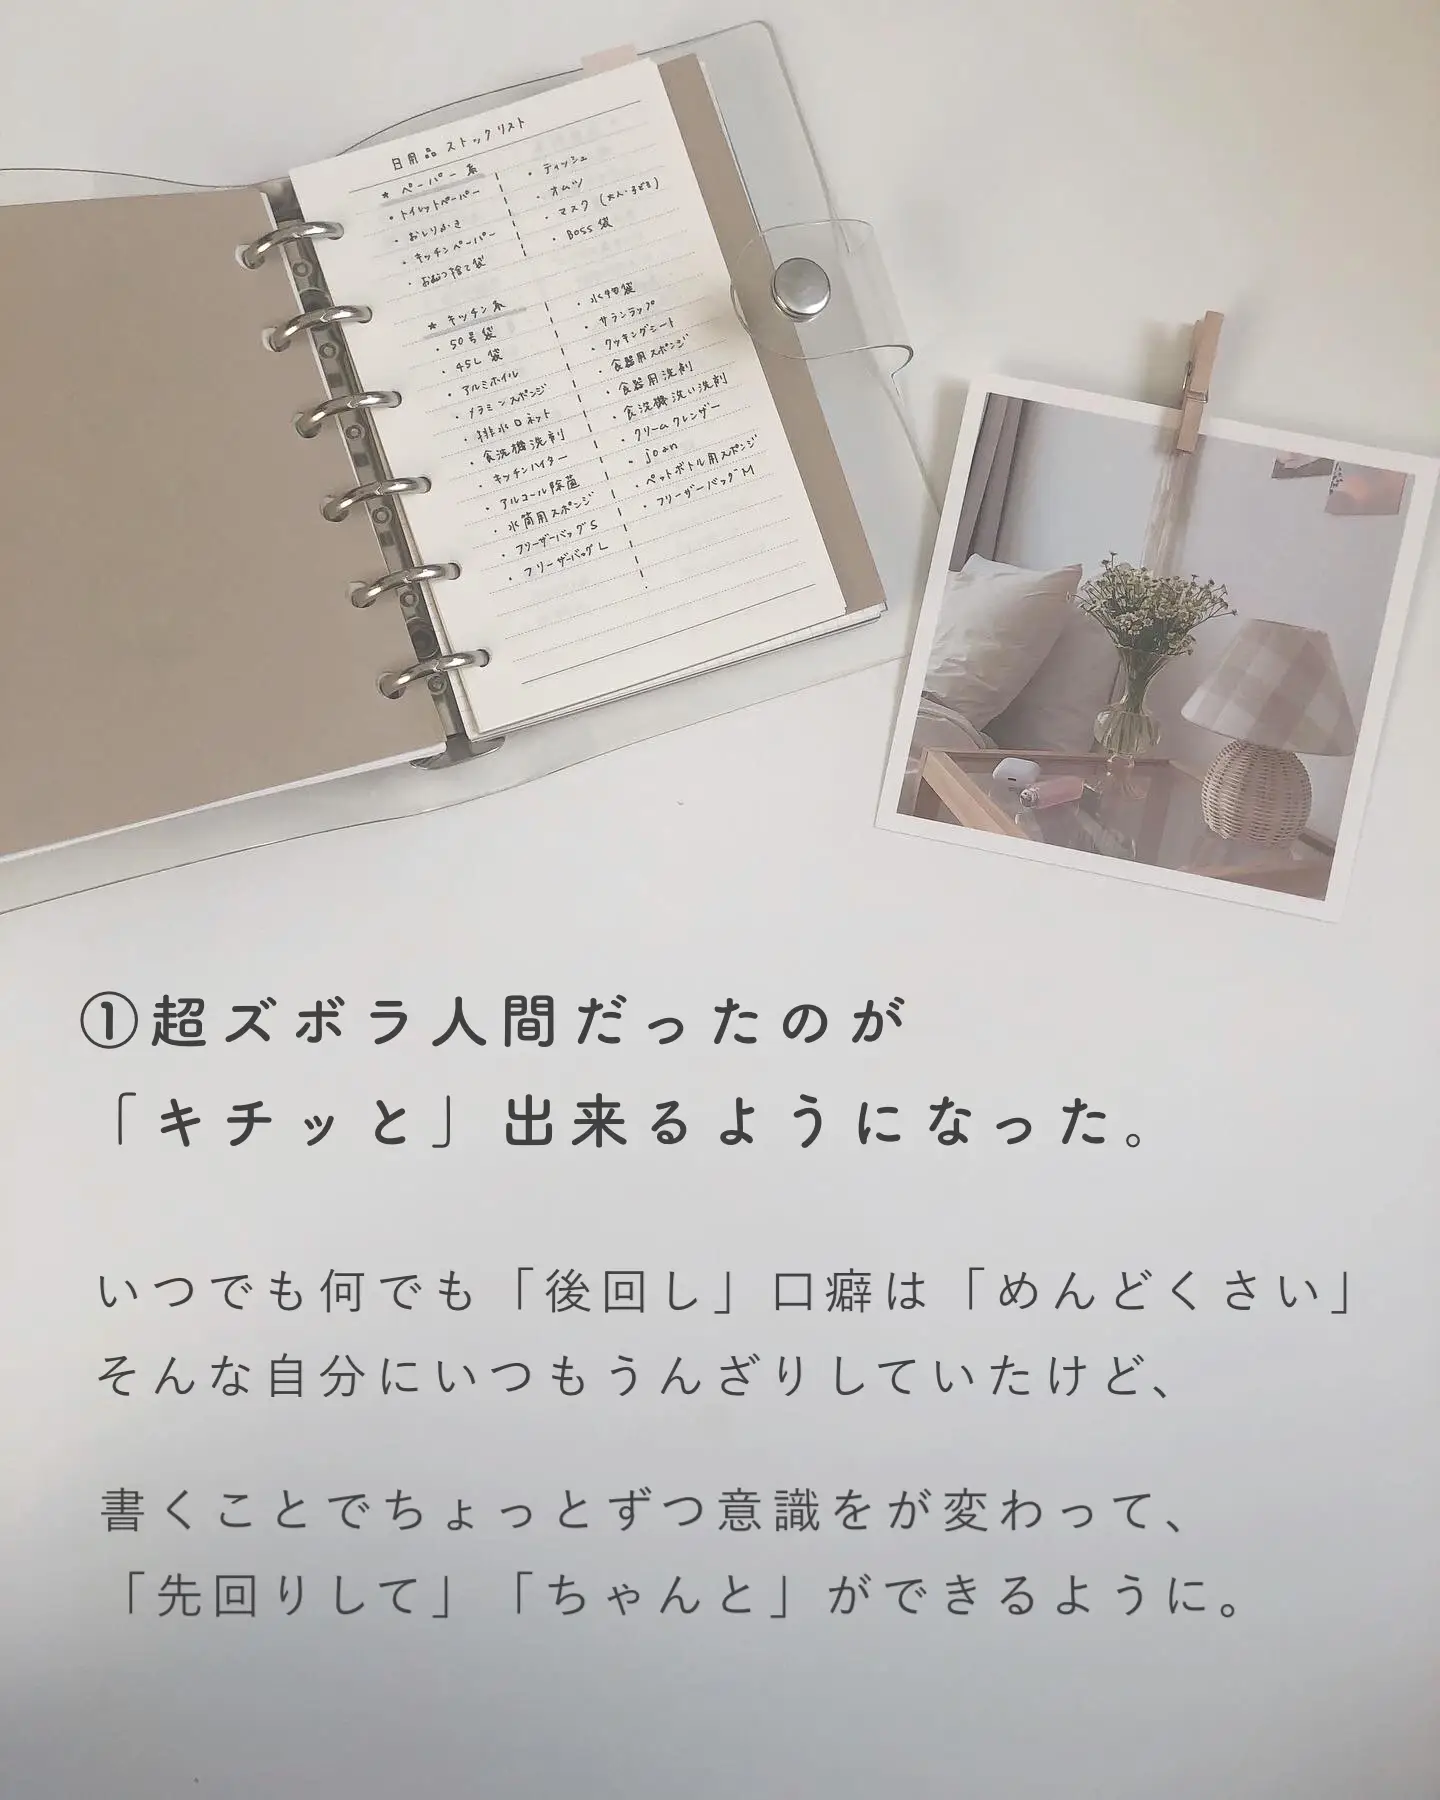 日用品 ストックリスト
★ ペーパー系
・トイレットペーパー
・おしりふき
・キッチンペーパー
・おむつ捨て袋
・ティッシュ
・オムツ
・マスク (大人・子ども)
・BOSS 袋
★ キッチン系
・50号袋
・45L 袋
・アルミホイル
・メラミンスポンジ
・排水口ネット
・食洗機洗剤
・キッチンハイター
・アルコール除菌
・水筒用スポンジ
・フリーザーバッグS
・フリーザーバッグL
・水物袋
・サランラップ
・クッキングシート
・食器用スポンジ
・食器用洗剤
・食洗機洗い洗剤
・クリームクレンザー
・joan
・ペットボトル用スポンジ
・フリーザーバッグM
①超ズボラ人間だったのが
「キチッと」出来るようになった。
いつでも何でも「後回し」口癖は「めんどくさい」
そんな自分にいつもうんざりしていたけど、
書くことでちょっとずつ意識をが変わって、
「先回りして」「ちゃんと」ができるように。